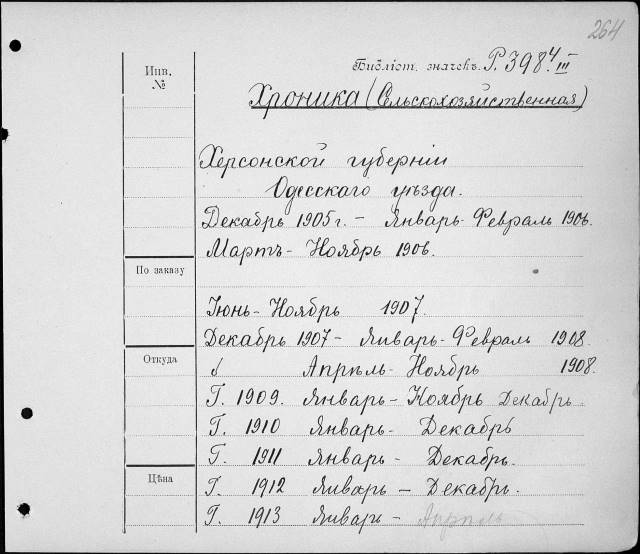 264
Библіот. значекъ. Р. 398 4/III
Инв.
№
Хроника (Сельскохозяйственная)
Херсонской губерніи
Одесскаго уѣзда.
Декабрь 1905 г. – Январь-Февраль 1906.
Мартъ-Ноябрь 1906.
По заказу
Іюнь-Ноябрь 1907.
Декабрь 1907 – Январь-Февраль 1908.
Откуда
Апрѣль-Ноябрь 1908.
Г. 1909. Январь-Ноябрь Декабрь
Г. 1910 Январь- Декабрь
Г. 1911 Январь - Декабрь.
Цѣна
Г. 1912 Январь – Декабрь.
Г. 1913 Январь - Апрѣль